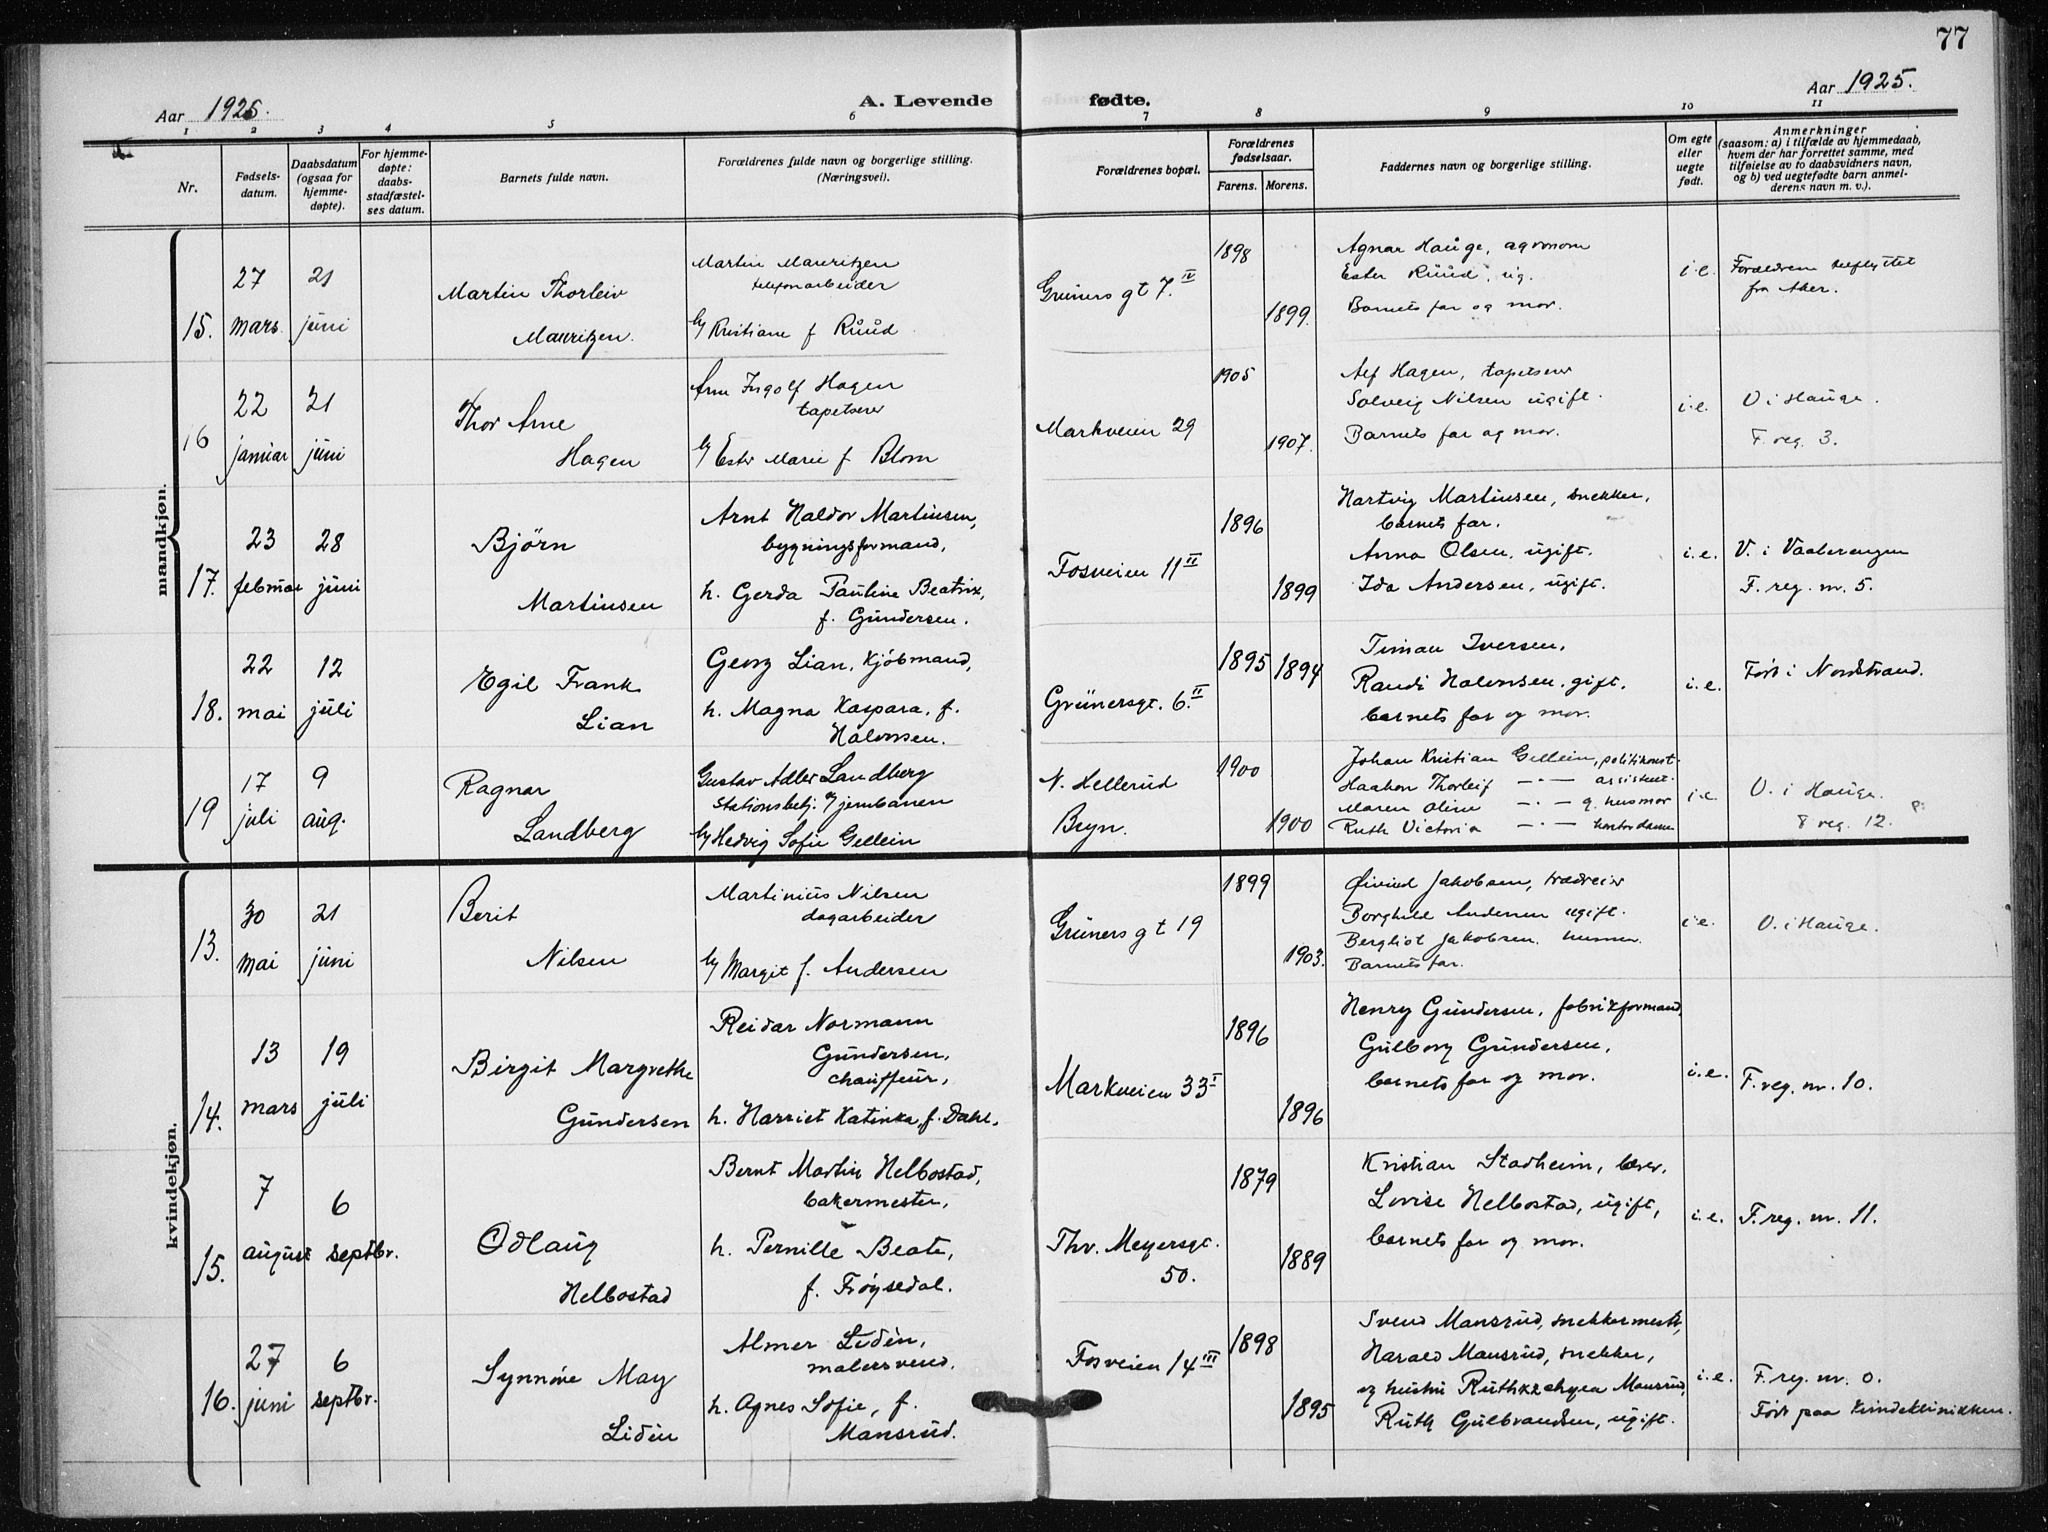 77
Aar 1925.
A. Levende
fødte.
Aar 1925.
1 2 3 4 5 6 7 8 9 10 11
Nr.
Fødsels-
datum.
Daabsdatum
(ogsaa for
hjemme-
døpte).
For hjemme-
døpte:
daabs-
stadfæstel-
ses datum.
Barnets fulde navn.
Forældrenes fulde navn og borgerlige stilling.
(Næringsvei).
Forældrenes bopæl.
Forældrenes
fødselsaar.
Farens. Morens.
Faddernes navn og borgerlige stilling.
Om egte
eller
uegte
født.
Anmerkninger
(saasom: a) i tilfælde av hjemmedaab,
hvem der har forrettet samme, med
tilføielse av to daabsvidners navn,
og b) ved uegtefødte barn anmel-
derens navn m. v.).
mandkjøn.
15.
27
mars
21
juni
Martin Thorleiv
Mauritzen.
Martin Mauritzen
telefonarbeider
Kristiane f Ruud
Grüners gt 7. IV
1898
1899.
Agnar Hauge, agronom
Ester Ruud, ug.
Barnets far og mor.
i.e.
Forældrene indflyttet
fra Aker.
16
22
januar
21
juni
Thor Arne
Hagen
Arne Ingolf Hagen
tapetserer
Ester Marie f Blom
Markveien 29
1905
1907.
Alf Hagen, tapetserer
Solveig Nilsen ugift.
Barnets far og mor.
i.e.
V i Hauge.
F. reg. 3.
17.
23
februar
28
juni
Bjørn
Martinsen
Arnt Haldor Martinsen,
bygningsformand,
h. Gerda Pauline Beatrix,
f. Gundersen.
Fosveien 11 II
1896
1899
Hartvig Martinsen, snekker,
barnets far.
Anna Olsen, ugift.
Ida Andersen, ugift.
i.e.
V. i Vaalerengen
F. reg. nr. 5.
18.
22
mai
12
juli
Egil Frank
Lian
Georg Lian, kjøbmand,
h. Magna Kaspara, f.
Halvorsen.
Grünersgt. 6. II
1895
1894
Timan Iversen,
Randi Halvorsen, gift,
barnets far og mor.
i.e.
Født i Nordstrand.
19
17
juli
9
aug.
Ragnar
Landberg
Gustav Adler Landberg
stationsbetj. v/ jernbanen
Hedvig Sofie Gellein
N. Hellerud
Bryn.
1900
1900
Johan Kristian Gellein, politikonst.
Haakon Thorleif — · — assistent.
Maren Oline — · — g. husmor
Ruth Victoria — · — kontordame
i.e.
V. i Hauge.
F reg. 12.
kvindekjøn.
13.
30
mai
21
juni
Berit
Nilsen
Martinius Nilsen
dagarbeider
Margit f. Andersen
Grüners gt 19
1899
1903.
Øivind Jakobsen, trædreier
Borghild Andersen ugift.
Bergliot Jakobsen, husmor.
Barnets far.
i.e.
V. i Hauge.
14.
13
mars
19
juli
Birgit Margrethe
Gundersen
Reidar Normann
Gundersen,
chauffeur,
h. Harriet Katinka, f. Dahl.
Markveien 33 I
1896
1896
Henry Gundersen, fabrikformand,
Gulborg Gundersen,
barnets far og mor.
i.e.
F. reg. nr. 10.
15.
7
august
6
septbr.
Odlaug
Helbostad
Bernt Martin Helbostad,
bakermester,
h. Pernille Beate,
f. Frøysedal.
Thv. Meyersgt.
50.
1879
1889
Kristian Stadheim, lærer,
Lovise Helbostad, ugift,
barnets far og mor.
i.e.
F. reg. nr. 11.
16.
27
juni
6
septbr.
Synnøve May
Lidén
Almer Lidén,
malersvend.
h. Agnes Sofie, f.
Mansrud.
Fosveien 14 III
1898
1895
Svend Mansrud, snekkermestr,
Harald Mansrud, snekker,
og hustru Ruth Mansrud,
Ruth Gulbrandsen, ugift.
i.e.
F. reg. nr. 0.
Født paa Kvindeklinikken.